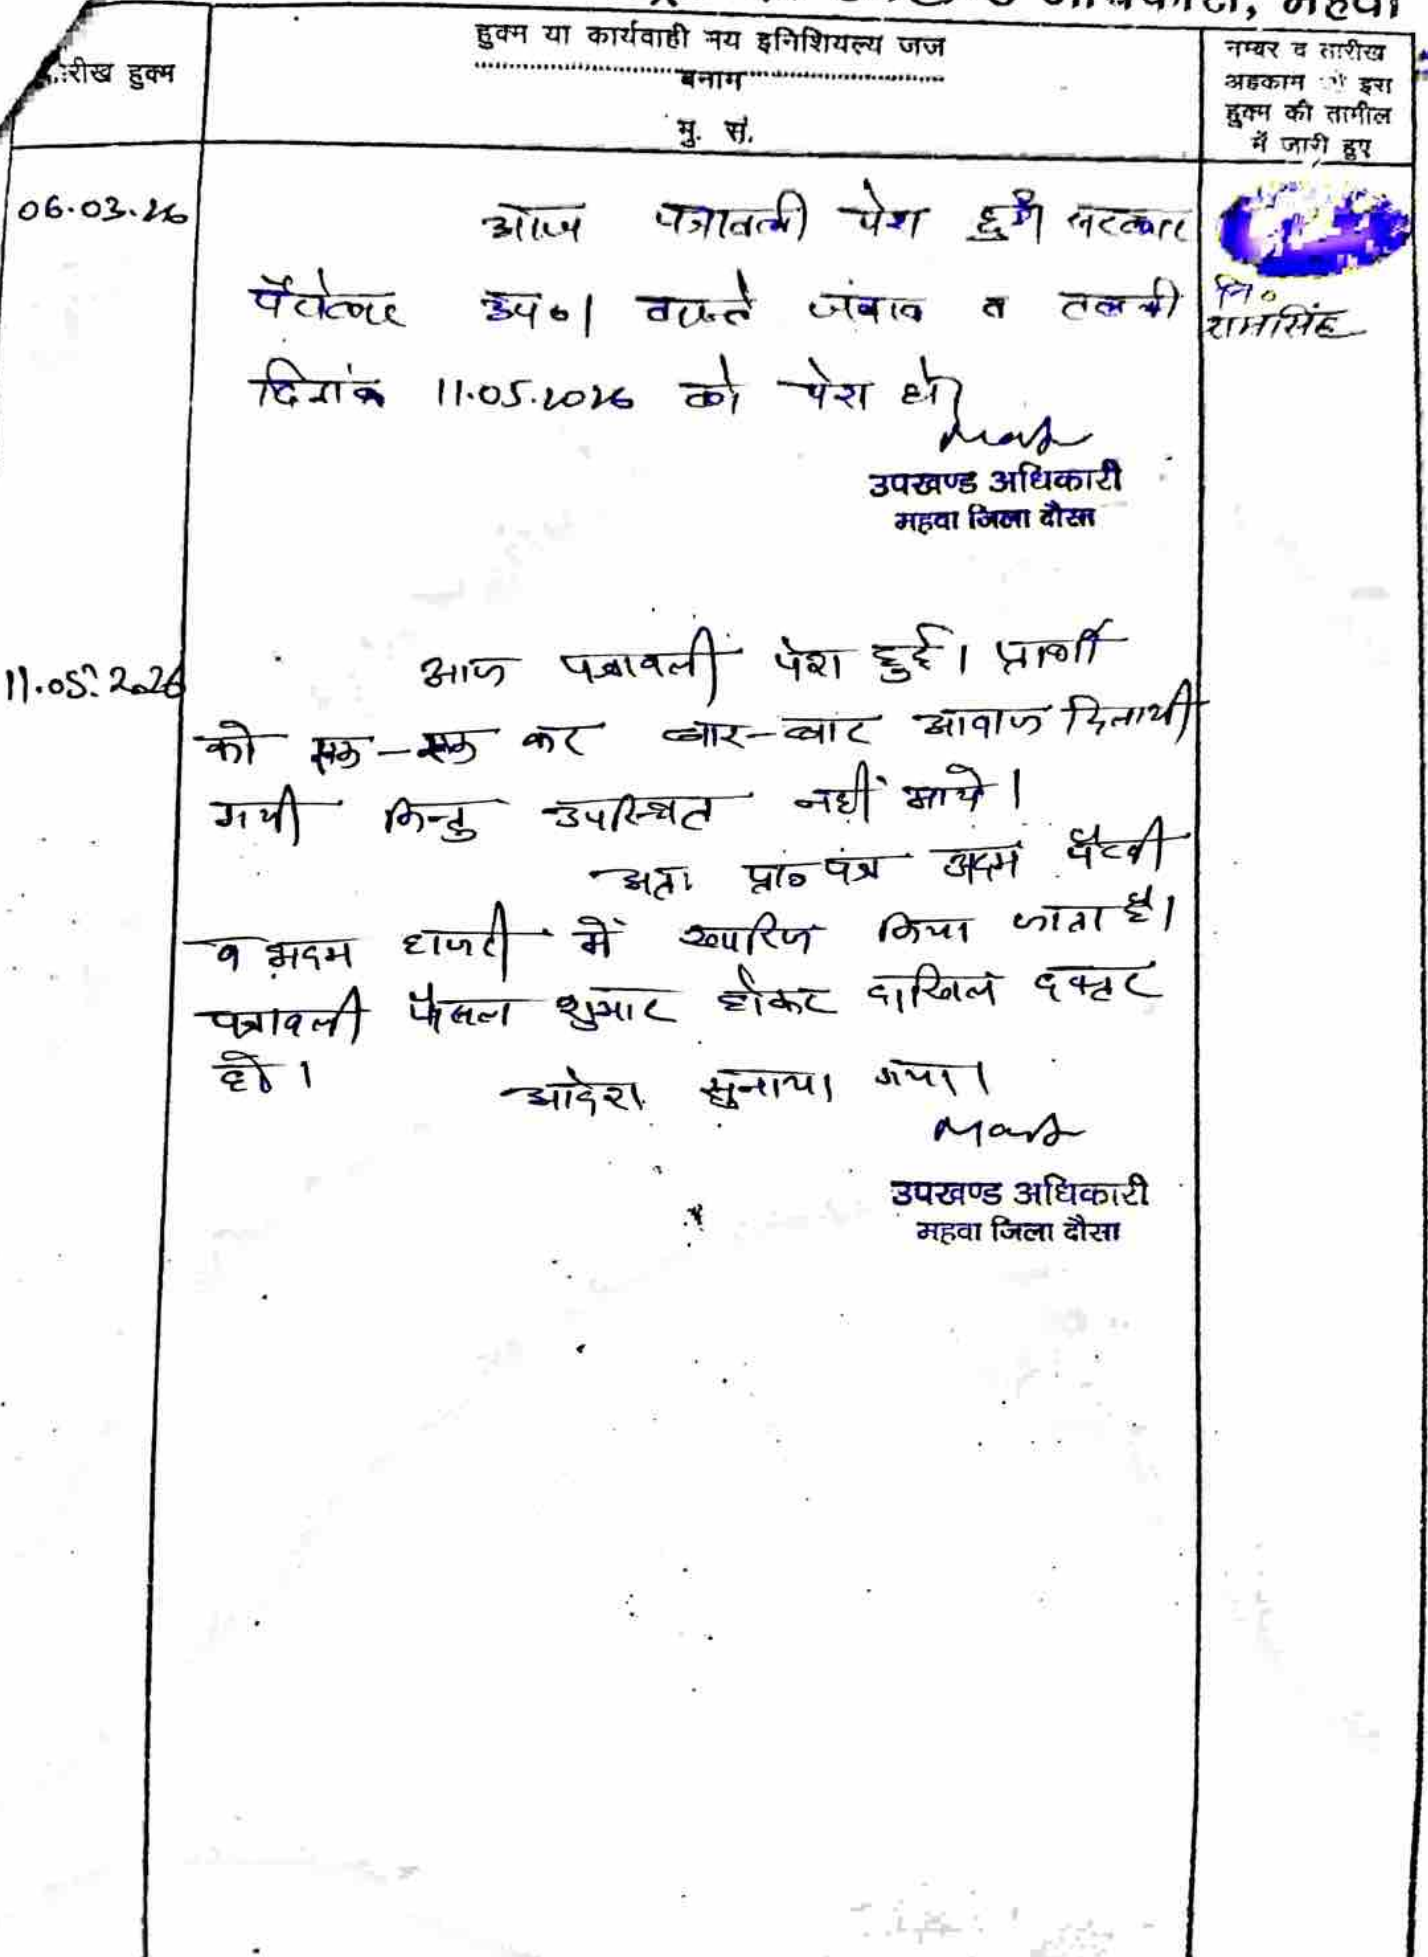 अधिकारी, महवा
तारीख हुक्म
हुक्म या कार्यवाही मय इनिशियल्य जज
बनाम
मु. सं.
नम्बर व तारीख
अहकाम जो इस
हुक्म की तामील
में जारी हुए
06.03.26
आज पत्रावली पेश हुई सरकार
पैरोकार उप०। वास्ते जवाब व तलबी
दिनांक 11.05.2026 को पेश हो।
नि०
रामसिंह
उपखण्ड अधिकारी
महवा जिला दौसा
11.05.2026
आज पत्रावली पेश हुई। प्रार्थी
को एक-एक कर बार-बार आवाज दिलायी
गयी किन्तु उपस्थित नहीं आये।
अतः प्रा० पत्र अदम पैरवी
व अदम हाजरी में खारिज किया जाता है।
पत्रावली फैसल शुमार होकर दाखिल दफ्तर
हो।
आदेश सुनाया गया।
उपखण्ड अधिकारी
महवा जिला दौसा